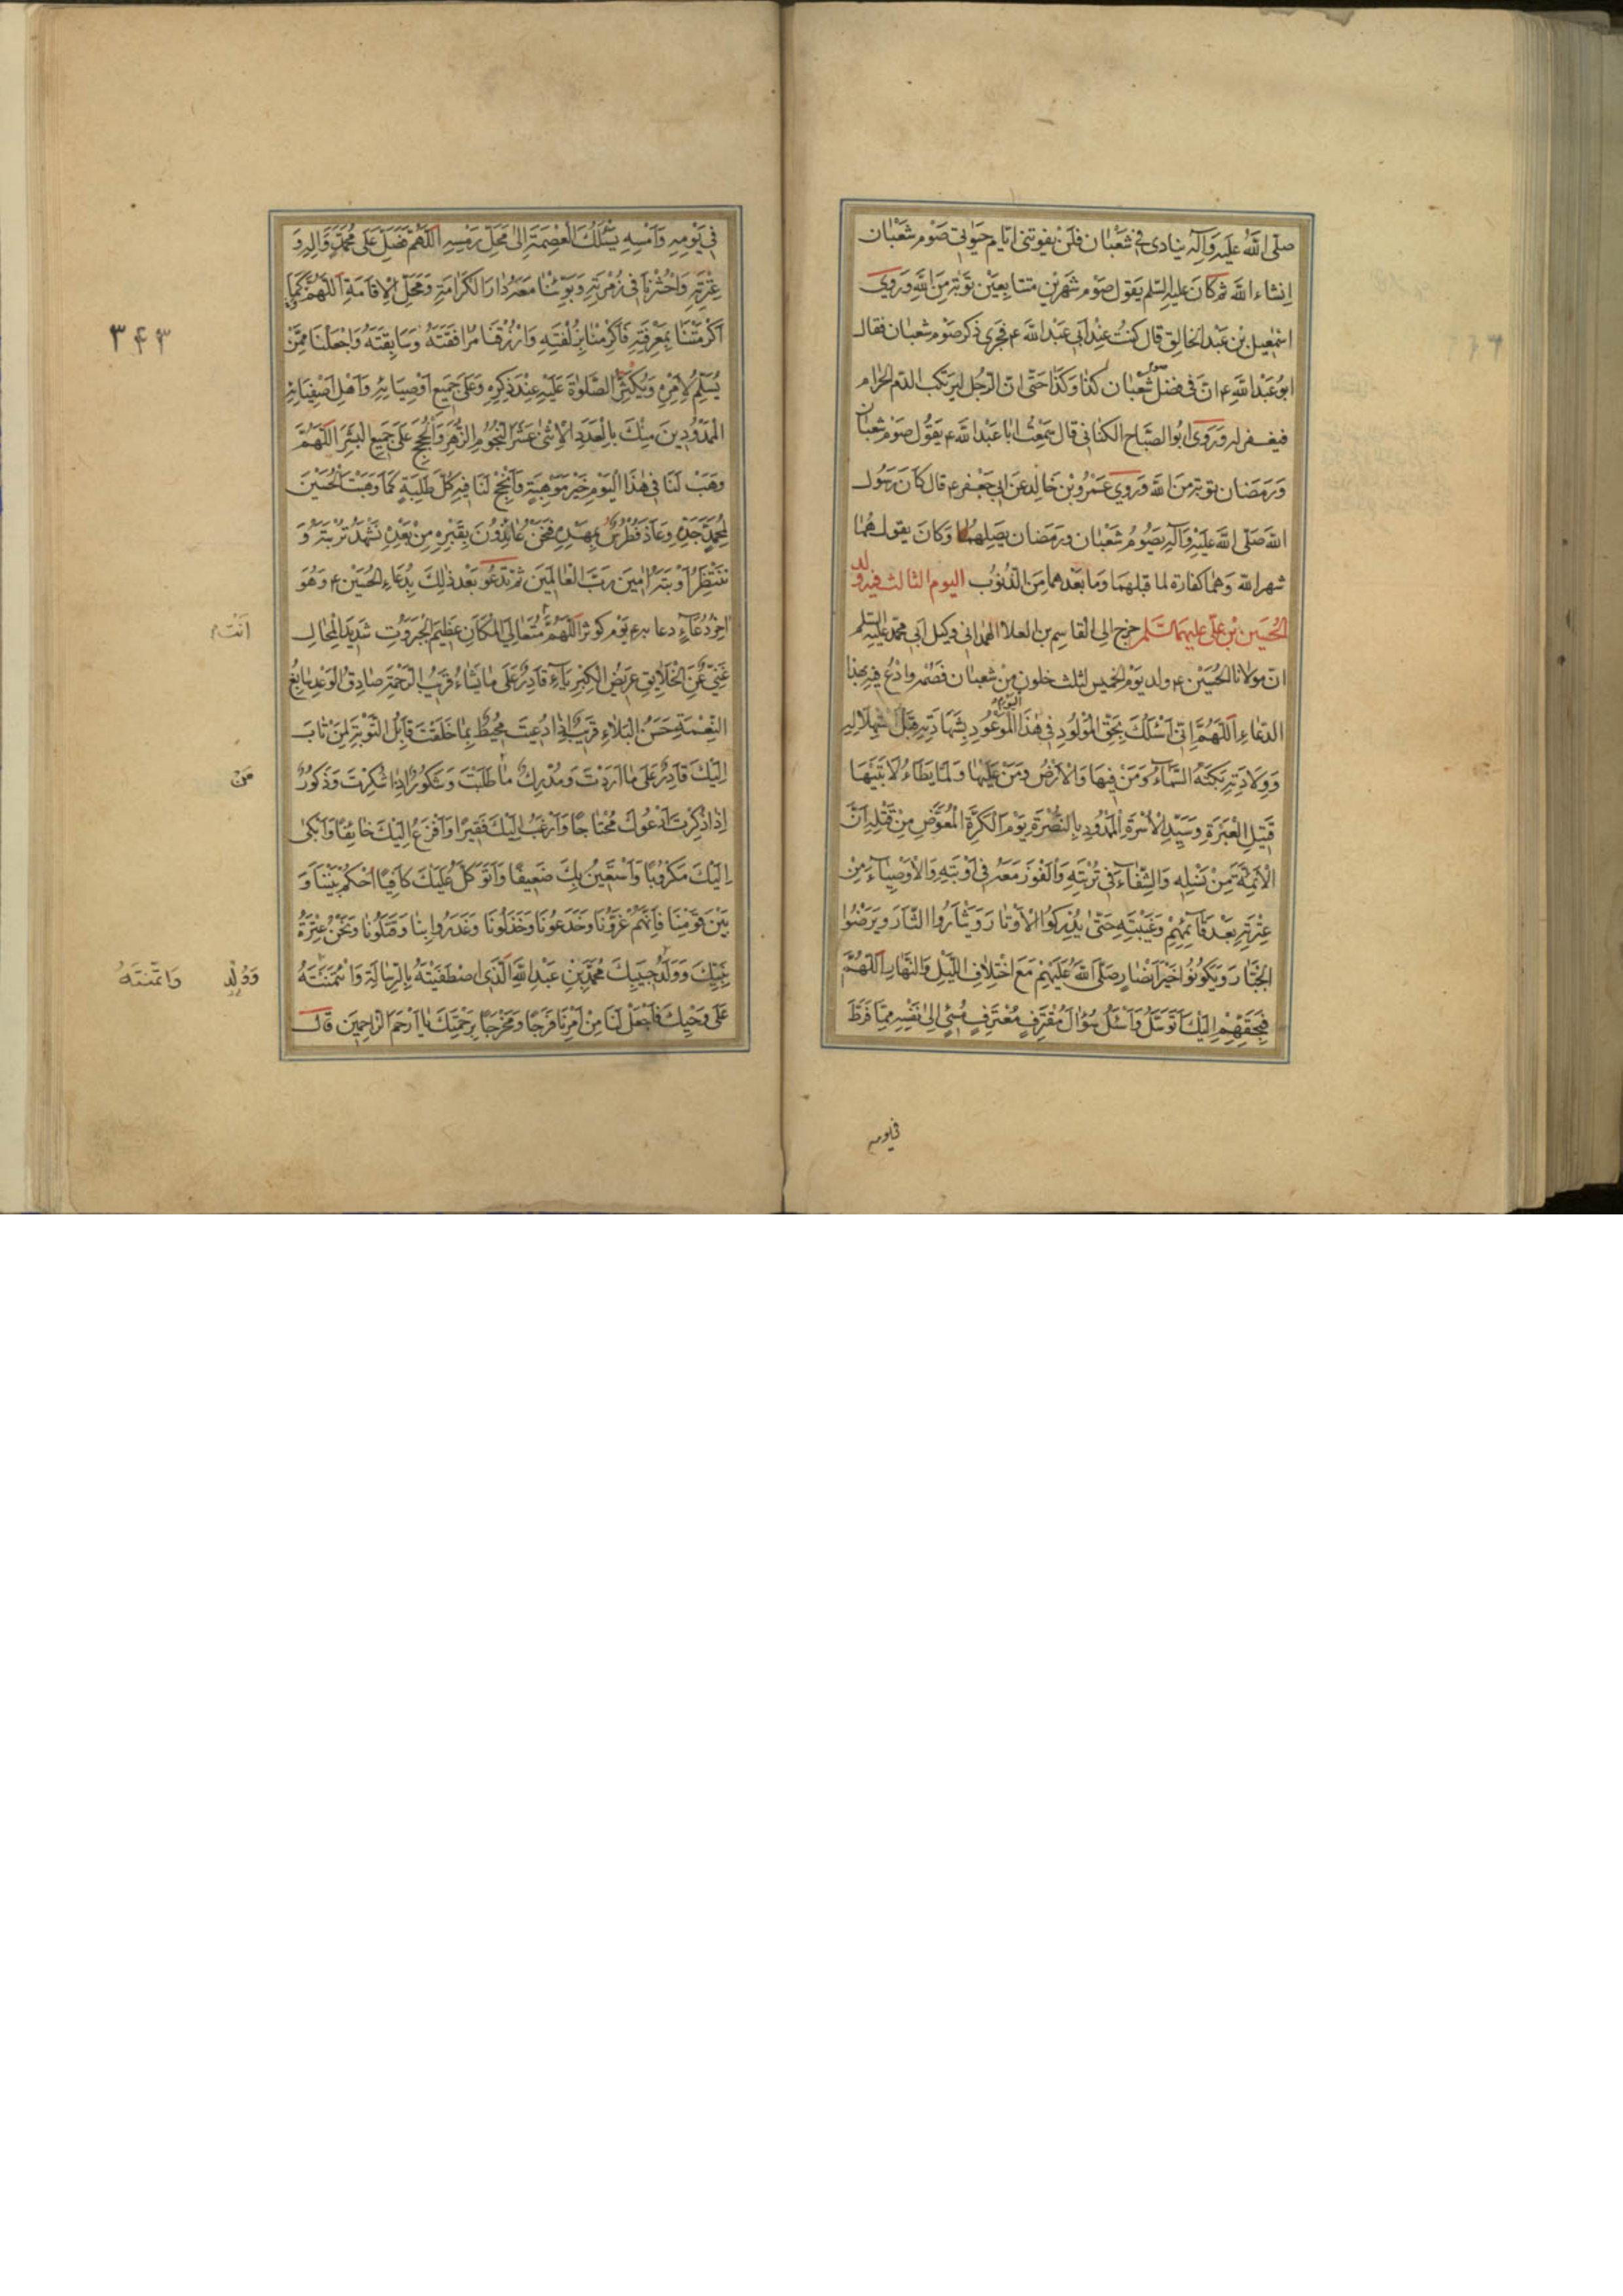 صلّى اللّه عليه وآله ينادى فى شعبان فلن يفوتنى ايّام حيوتى صوم شعبان
انشاء اللّه ثم كان عليه السّلم يقول صوم شهرين متتابعين توبة من اللّه وروى
اسمعيل بن عبد الخالق قال كنت عند ابى عبد اللّه ع فجرى ذكر صوم شعبان فقال
ابو عبد اللّه ع ان فى فضل صوم شعبان كذا وكذا حتى ان الرّجل ليرتكب الدم الحرام
فيغفر له وروى ابو الصّباح الكنانى قال سمعت ابا عبد اللّه ع يقول صوم شعبان
ورمضان توبة من اللّه وروى عمرو بن خالد عن ابى جعفر ع قال كان رسول
اللّه صلّى اللّه عليه وآله يصوم شعبان ورمضان يصلهما وكان يقول هما
شهر اللّه وهما كفارة لما قبلهما وما بعدهما من الذنوب اليوم الثالث فيه ولد
الحُسَين بن علىّ عليهما السّلم خرج الى القاسم بن العلا الهمدانى وكيل ابى محمّد عليه السّلم
انّ مولانا الحُسَيْن ع ولد يوم الخميس لثلث خلون من شعبان فصمه وادع فيه بهذا
الدعاء اَللّهُمَّ اِنّى اَسْئَلُكَ بِحَقِّ الْمَوْلُودِ فى هٰذَا الْيَوْمِ الْمَوْعُودِ بِشَهادَتِه قَبْلَ اسْتِهْلالِه
وَوِلادَتِه بَكَتْهُ السَّمآءُ وَمَنْ فيها وَالْاَرْضُ وَمَنْ عَلَيْها وَلَمّا يَطَاْ لابَتَيْها
قَتيلِ الْعَبْرَةِ وَسَيِّدِ الْاُسْرَةِ الْمَمْدُودِ بِالنُّصْرَةِ يَوْمَ الْكَرَّةِ الْمُعَوَّضِ مِنْ قَتْلِه اَنَّ
الْاَئِمَّةَ مِنْ نَسْلِه وَالشِّفآءَ فى تُرْبَتِه وَالْفَوْزَ مَعَهُ فى اَوْبَتِه وَالْاَوْصِيآءَ مِنْ
عِتْرَتِه بَعْدَ قآئِمِهِمْ وَغَيْبَتِه حَتّى يُدْرِكُوا الْاَوْتارَ وَيَثْاَرُوا الثّارَ وَيَرْضُوا
الْجَبّارَ وَيَكُونُوا خَيْرَ اَنْصارٍ صَلَّى اللّهُ عَلَيْهِمْ مَعَ اخْتِلافِ اللَّيْلِ وَالنَّهارِ اَللّهُمَّ
فَبِحَقِّهِمْ اِلَيْكَ اَتَوَسَّلُ وَاَسْئَلُ سُؤالَ مُقْتَرِفٍ مُعْتَرِفٍ مُسىءٍ اِلى نَفْسِه مِمّا فَرَّطَ
فى يومه
فى يَوْمِه وَاَمْسِه يَسْئَلُكَ الْعِصْمَةَ اِلى مَحَلِّ رَمْسِه اَللّهُمَّ صَلِّ عَلى مُحَمَّدٍ وَآلِه وَ
عِتْرَتِه وَاحْشُرْنا فى زُمْرَتِه وَبَوِّئْنا مَعَهُ دارَ الْكَرامَةِ وَمَحَلَّ الْاِقامَةِ اَللّهُمَّ كَما
اَكْرَمْتَنا بِمَعْرِفَتِه فَاَكْرِمْنا بِزُلْفَتِه وَارْزُقْنا مُرافَقَتَهُ وَسابِقَتَهُ وَاجْعَلْنا مِمَّنْ
٣۴٣
يُسَلِّمُ لِاَمْرِه وَيُكْثِرُ الصَّلوٰةَ عَلَيْهِ عِنْدَ ذِكْرِه وَعَلى جَميعِ اَوْصِيآئِه وَاَهْلِ اَصْفِيآئِه
الْمَمْدُودينَ مِنْكَ بِالْعَدَدِ الْاِثْنى عَشَرَ النُّجُومِ الزُّهَرِ وَالْحُجَجِ عَلى جَميعِ الْبَشَرِ اَللّهُمَّ
وَهَبْ لَنا فى هٰذَا الْيَوْمِ خَيْرَ مَوْهِبَةٍ وَاَنْجِحْ لَنا فيهِ كُلَّ طَلِبَةٍ كَما وَهَبْتَ الْحُسَيْنَ
لِمُحَمَّدٍ جَدِّه وَعاذَ فُطْرُسُ بِمَهْدِه فَنَحْنُ عائِذُونَ بِقَبْرِه مِنْ بَعْدِه نَشْهَدُ تُرْبَتَهُ وَ
نَنْتَظِرُ اَوْبَتَهُ آمينَ رَبَّ الْعالَمينَ ثم تَدْعُو بَعْدَ ذلِكَ بِدُعاءِ الحُسَيْن ع وَهُوَ
آخِرُ دُعآءٍ دعا به ع يَوْم كوثر اَللّهُمَّ مُتَعالِىَ الْمَكانِ عَظيمَ الْجَبَرُوتِ شَديدَ الْمِحالِ
اَنْتَ
غَنِىٌّ عَنِ الْخَلايِقِ عَريضُ الْكِبْرِيآءِ قادِرٌ عَلى ما يَشاءُ قَريبُ الرَّحْمَةِ صادِقُ الْوَعْدِ سابِغُ
النِّعْمَةِ حَسَنُ الْبَلاءِ قَريبٌ اِذا دُعيتَ مُحيطٌ بِما خَلَقْتَ قابِلُ التَّوْبَةِ لِمَنْ تابَ
اِلَيْكَ قادِرٌ عَلى ما اَرَدْتَ وَمُدْرِكٌ ما طَلَبْتَ وَشَكُورٌ اِذا شُكِرْتَ وَذَكُورٌ
مَنْ
اِذا ذُكِرْتَ اَدْعُوكَ مُحْتاجًا وَاَرْغَبُ اِلَيْكَ فَقيرًا وَاَفْزَعُ اِلَيْكَ خائِفًا وَاَبْكى
اِلَيْكَ مَكْرُوبًا وَاَسْتَعينُ بِكَ ضَعيفًا وَاَتَوَكَّلُ عَلَيْكَ كافِيًا اُحْكُمْ بَيْنَنا وَ
بَيْنَ قَوْمِنا فَاِنَّهُمْ غَرُّونا وَخَدَعُونا وَخَذَلُونا وَغَدَرُوا بِنا وَقَتَلُونا وَنَحْنُ عِتْرَةُ
نَبِيِّكَ وَوَلَدُ حَبيبِكَ مُحَمَّدِ بْنِ عَبْدِ اللّهِ الَّذى اصْطَفَيْتَهُ بِالرِّسالَةِ وَائْتَمَنْتَهُ
وَوُلْدِ وَائْتَمَنْتَهُ
عَلى وَحْيِكَ فَاجْعَلْ لَنا مِنْ اَمْرِنا فَرَجًا وَمَخْرَجًا بِرَحْمَتِكَ يا اَرْحَمَ الرّاحِمينَ قال